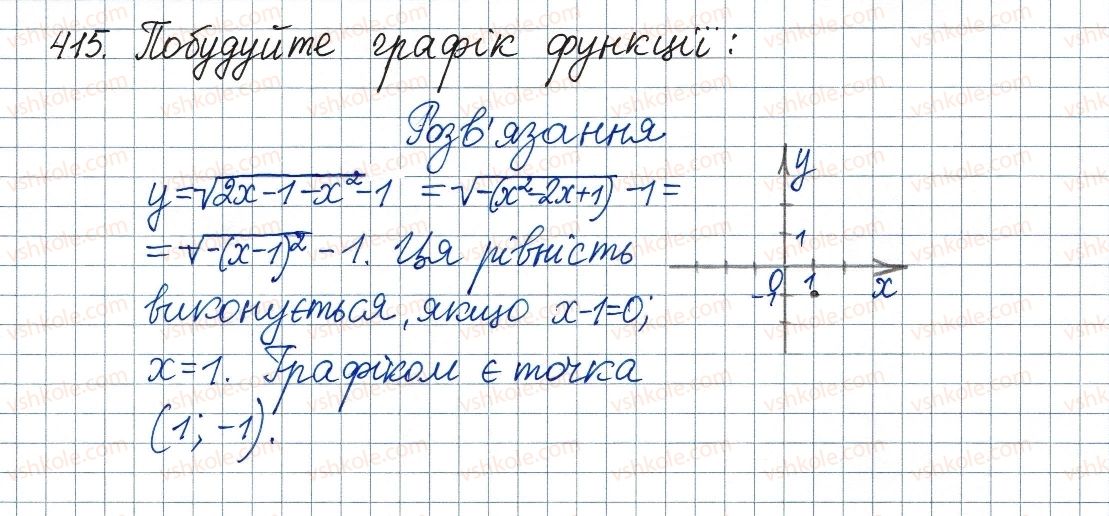 415. Побудуйте графік функції:
Розв'язання
y=√(2x-1-x²)-1 = √(-(x²-2x+1)) -1=
= √(-(x-1)²) -1. Ця рівність
виконується, якщо x-1=0;
x=1. Графіком є точка
(1; -1).
y
1
0 1 x
-1
vshkole.com